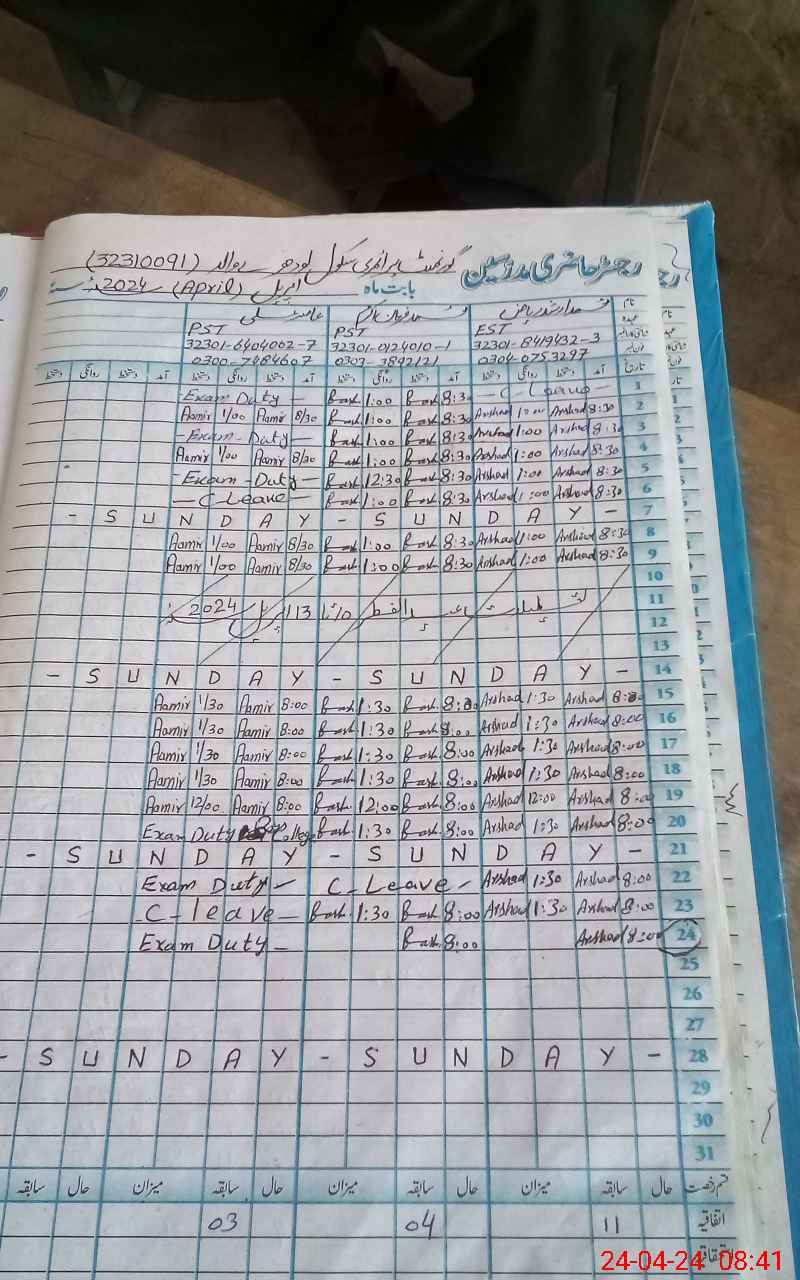 رجسٹر حاضری مدرسین گورنمنٹ پرائمری سکول لودھر والہ (32310091)
بابت ماہ اپریل (April) 2024
نام محمد ارشد ریاض
EST PST PST
32301-8419432-3 32301-0124010-1 32301-6404062-7
0304-0753297 0303-3892121 0300-7484607
تاریخ آمد دستخط روانگی دستخط آمد دستخط روانگی دستخط آمد دستخط روانگی دستخط آمد دستخط روانگی دستخط
Exam Duty - 1:00 8:30 - C Leave - 1
Aamir 1/00 Aamir 8/30 1:00 8:30 Arshad 1:00 Arshad 8:30 2
- Exam - Duty - 1:00 8:30 Arshad 1:00 Arshad 8:30 3
Aamir 1/00 Aamir 8/30 1:00 8:30 Arshad 1:00 Arshad 8:30 4
- Exam - Duty - 12:30 8:30 Arshad 1:00 Arshad 8:30 5
- C Leave - 1:00 8:30 Arshad 1:00 Arshad 8:30 6
- S U N D A Y - S U N D A Y - 7
Aamir 1/00 Aamir 8/30 1:00 8:30 Arshad 1:00 Arshad 8:30 8
Aamir 1/00 Aamir 8/30 1:00 8:30 Arshad 1:00 Arshad 8:30 9
10
تعطیلات عید الفطر 10 تا 13 اپریل 2024 11
12
13
- S U N D A Y - S U N D A Y - 14
Aamir 1/30 Aamir 8:00 1:30 8:00 Arshad 1:30 Arshad 8:00 15
Aamir 1/30 Aamir 8:00 1:30 8:00 Arshad 1:30 Arshad 8:00 16
Aamir 1/30 Aamir 8:00 1:30 8:00 Arshad 1:30 Arshad 8:00 17
Aamir 1/30 Aamir 8:00 1:30 8:00 Arshad 1:30 Arshad 8:00 18
Aamir 12/00 Aamir 8:00 12:00 8:00 Arshad 12:00 Arshad 8:00 19
Exam Duty College 1:30 8:00 Arshad 1:30 Arshad 8:00 20
- S U N D A Y - S U N D A Y - 21
Exam Duty - C-Leave - Arshad 1:30 Arshad 8:00 22
- C-leave - 1:30 8:00 Arshad 1:30 Arshad 8:00 23
Exam Duty - 8:00 Arshad 8:00 24
25
26
27
- S U N D A Y - S U N D A Y - 28
29
30
31
قسم رخصت حال سابقہ میزان حال سابقہ میزان حال سابقہ میزان حال سابقہ
اتفاقیہ 11 04 03
24-04-24 08:41